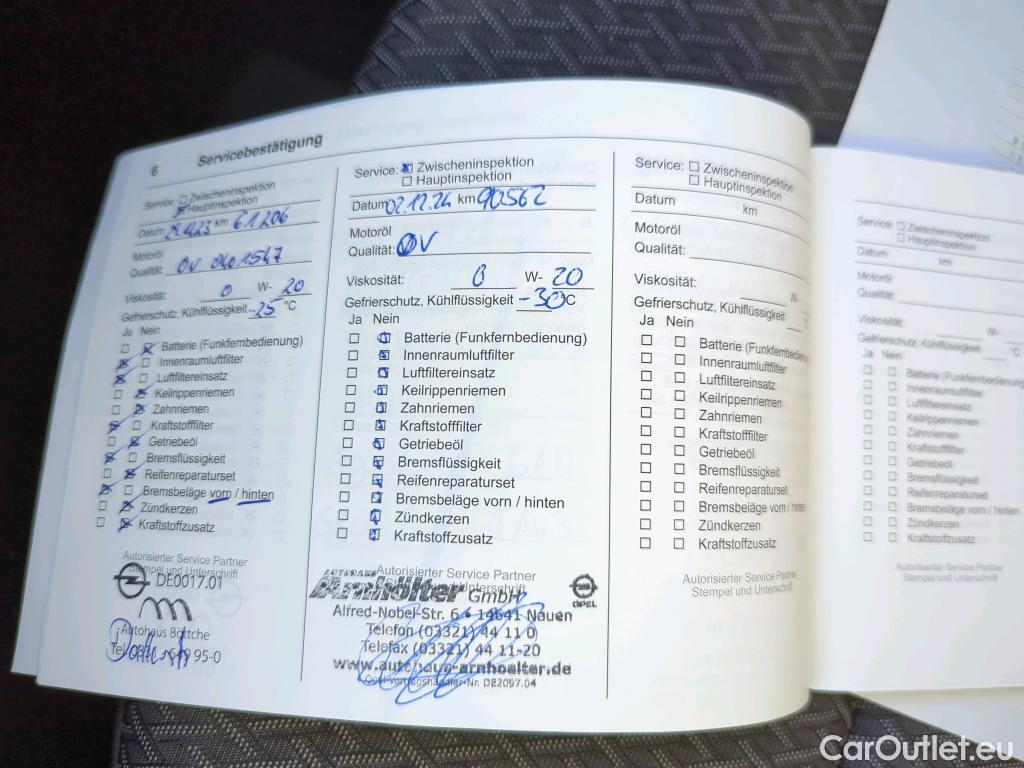 6 Servicebestätigung
Service: Zwischeninspektion
Hauptinspektion
Datum km 61206
Motoröl
Qualität: OV 0401547
Viskosität: 0 W- 20
Gefrierschutz, Kühlflüssigkeit -25 °C
Ja Nein
Batterie (Funkfernbedienung)
Innenraumluftfilter
Luftfiltereinsatz
Keilrippenriemen
Zahnriemen
Kraftstofffilter
Getriebeöl
Bremsflüssigkeit
Reifenreparaturset
Bremsbeläge vorn / hinten
Zündkerzen
Kraftstoffzusatz
Autorisierter Service Partner
Stempel und Unterschrift
DE0017.01
Autohaus Böttche
Service: Zwischeninspektion
Hauptinspektion
Datum 02.12.24 km 90562
Motoröl
Qualität: OV
Viskosität: 0 W- 20
Gefrierschutz, Kühlflüssigkeit -30 °C
Ja Nein
Batterie (Funkfernbedienung)
Innenraumluftfilter
Luftfiltereinsatz
Keilrippenriemen
Zahnriemen
Kraftstofffilter
Getriebeöl
Bremsflüssigkeit
Reifenreparaturset
Bremsbeläge vorn / hinten
Zündkerzen
Kraftstoffzusatz
Autorisierter Service Partner
AUTOHAUS
Arnhölter GmbH
OPEL
Alfred-Nobel-Str. 6 • 14641 Nauen
Telefon (03321) 44 11 0
Telefax (03321) 44 11-20
www.autohaus-arnhoelter.de
Opel Vertragshändler-Nr. DE2097.04
Service: Zwischeninspektion
Hauptinspektion
Datum km
Motoröl
Qualität:
Viskosität: W-
Gefrierschutz, Kühlflüssigkeit °C
Ja Nein
Batterie (Funkfernbedienun
Innenraumluftfilter
Luftfiltereinsatz
Keilrippenriemen
Zahnriemen
Kraftstofffilter
Getriebeöl
Bremsflüssigkeit
Reifenreparaturset
Bremsbeläge vorn / hinten
Zündkerzen
Kraftstoffzusatz
Autorisierter Service Partner
Stempel und Unterschrift
Service: Zwischeninspektion
Hauptinspektion
Datum km
Motoröl
Qualität:
Viskosität: W-
Gefrierschutz, Kühlflüssigkeit °C
Ja Nein
Batterie (Funkfernbedienung
Innenraumluftfilter
Luftfiltereinsatz
Keilrippenriemen
Zahnriemen
Kraftstofffilter
Getriebeöl
Bremsflüssigkeit
Reifenreparaturset
Bremsbeläge vorn / hinten
Zündkerzen
Kraftstoffzusatz
Autorisierter Service Partner
Stempel und Unterschrift
CarOutlet.eu